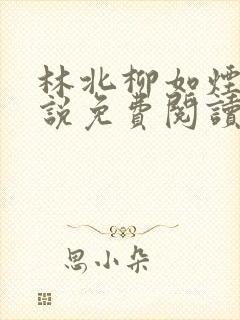 林北柳如煙
說免費閱讀
思小朵